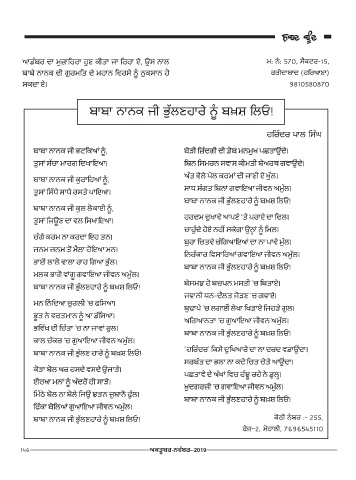 ਸ਼ਬਦ ਬੂੰਦ
ਆਡੰਬਰ ਦਾ ਮੁਜ਼ਾਹਿਰਾ ਹੁਣ ਕੀਤਾ ਜਾ ਰਿਹਾ ਏ, ਉਸ ਨਾਲ
ਬਾਬੇ ਨਾਨਕ ਦੀ ਗੁਰਮਤਿ ਦੇ ਮਹਾਨ ਵਿਰਸੇ ਨੂੰ ਨੁਕਸਾਨ ਹੋ
ਸਕਦਾ ਏ।
ਮ: ਨੰ: 570, ਸੈਕਟਰ-15,
ਫਰੀਦਾਬਾਦ (ਹਰਿਆਣਾ)
9810580870
ਬਾਬਾ ਨਾਨਕ ਜੀ ਭੁੱਲਣਹਾਰੇ ਨੂੰ ਬਖ਼ਸ਼ ਲਿਓ!
ਹਰਿੰਦਰ ਪਾਲ ਸਿੰਘ
ਬਾਬਾ ਨਾਨਕ ਜੀ ਭਟਕਿਆਂ ਨੂੰ,
ਤੁਸਾਂ ਸੱਚਾ ਮਾਰਗ ਦਿਖਾਇਆ।
ਬਾਬਾ ਨਾਨਕ ਜੀ ਕੁਰਾਹਿਆਂ ਨੂੰ,
ਤੁਸਾਂ ਸਿੱਧੇ ਸਾਧੇ ਰਸਤੇ ਪਾਇਆ।
ਬਾਬਾ ਨਾਨਕ ਜੀ ਕੁਲ ਲੋਕਾਈ ਨੂੰ,
ਤੁਸਾਂ ਜਿਊਣ ਦਾ ਵਲ ਸਿਖਾਇਆ।
ਚੰਗੇ ਕਰਮ ਨਾ ਕਰਦਾ ਇਹ ਤਨ।
ਜਨਮ ਜਨਮ ਤੋਂ ਮੈਲਾ ਹੋਇਆ ਮਨ।
ਭਾਈ ਲਾਲੋ ਵਾਲਾ ਰਾਹ ਗਿਆ ਭੁੱਲ।
ਮਲਕ ਭਾਗੋ ਵਾਂਗੂ ਗਵਾਇਆ ਜੀਵਨ ਅਮੁੱਲ।
ਬਾਬਾ ਨਾਨਕ ਜੀ ਭੁੱਲਣਹਾਰੇ ਨੂੰ ਬਖ਼ਸ਼ ਲਿਓ!
ਮਨ ਨਿੰਦਿਆ ਚੁਗਲੀ 'ਚ ਫਸਿਆ।
ਭੂਤ ਨੇ ਵਰਤਮਾਨ ਨੂੰ ਆ ਡੱਸਿਆ।
ਭਵਿੱਖ ਦੀ ਚਿੰਤਾ 'ਚ ਨਾ ਜਾਵਾਂ ਰੁਲ।
ਕਾਲ ਚੱਕਰ 'ਚ ਗੁਆਇਆ ਜੀਵਨ ਅਮੁੱਲ।
ਬਾਬਾ ਨਾਨਕ ਜੀ ਭੁੱਲਣ ਹਾਰੇ ਨੂੰ ਬਖ਼ਸ਼ ਲਿਓ!
ਕੌੜਾ ਬੋਲ ਘਰ ਹਸਦੇ ਵਸਦੇ ਉਜਾੜੇ।
ਈਰਖਾ ਮਨਾਂ ਨੂੰ ਅੰਦਰੋਂ ਹੀ ਸਾੜੇ।
ਮਿੱਠੇ ਬੋਲ ਨਾ ਬੋਲੇ ਜਿਉਂ ਝੜਨ ਜ਼ੁਬਾਨੋਂ ਫੁੱਲ।
ਫਿੱਕਾ ਬੋਲਿਆਂ ਗੁਆਇਆ ਜੀਵਨ ਅਮੁੱਲ।
ਬਾਬਾ ਨਾਨਕ ਜੀ ਭੁੱਲਣਹਾਰੇ ਨੂੰ ਬਖ਼ਸ਼ ਲਿਓ!
ਥੋੜੀ ਜ਼ਿੰਦਗੀ ਦੀ ਡੋਬ ਮਨਮੁਖ ਪਛਤਾਉਂਦੇ।
ਬਿਨ ਸਿਮਰਨ ਸਵਾਸ ਕੀਮਤੀ ਬੇਅਰਥ ਗਵਾਉਂਦੇ।
ਅੰਤ ਵੇਲੇ ਪੋਲ ਕਰਮਾਂ ਦੀ ਜਾਣੀ ਏ ਖੁੱਲ।
ਸਾਧ ਸੰਗਤ ਬਿਨਾਂ ਗਵਾਇਆ ਜੀਵਨ ਅਮੁੱਲ।
ਬਾਬਾ ਨਾਨਕ ਜੀ ਭੁੱਲਣਹਾਰੇ ਨੂੰ ਬਖ਼ਸ਼ ਲਿਓ!
ਹਰਦਮ ਦੁਖਾਵੇਂ ਆਪਣੇ 'ਤੇ ਪਰਾਏ ਦਾ ਦਿਲ।
ਚਾਹੁੰਦੇ ਹੋਏ ਨਹੀਂ ਸਕੇਗਾ ਉਨ੍ਹਾਂ ਨੂੰ ਮਿਲ।
ਬੁਰਾ ਚਿਤਵੇਂ ਚੰਗਿਆਇਆਂ ਦਾ ਨਾ ਪਾਵੇਂ ਮੁੱਲ।
ਨਿਰੰਕਾਰ ਵਿਸਾਰਿਆਂ ਗਵਾਇਆ ਜੀਵਨ ਅਮੁੱਲ।
ਬਾਬਾ ਨਾਨਕ ਜੀ ਭੁੱਲਣਹਾਰੇ ਨੂੰ ਬਖ਼ਸ਼ ਲਿਓ!
ਬੇਸਮਝ ਹੋ ਬਚਪਨ ਮਸਤੀ 'ਚ ਬਿਤਾਏ।
ਜਵਾਨੀ ਧਨ-ਦੌਲਤ ਜੋੜਣ 'ਚ ਗਵਾਏ।
ਬੁਢਾਪੇ 'ਚ ਲਗਾਈ ਲੇਖਾ ਖਿੜਾਏ ਜਿਹੜੇ ਗੁਲ।
ਅਗਿਆਨਤਾ 'ਚ ਗੁਆਇਆ ਜੀਵਨ ਅਮੁੱਲ।
ਬਾਬਾ ਨਾਨਕ ਜੀ ਭੁੱਲਣਹਾਰੇ ਨੂੰ ਬਖ਼ਸ਼ ਲਿਓ!
'ਹਰਿੰਦਰ' ਕਿਸੇ ਦੁਖਿਆਰੇ ਦਾ ਨਾ ਦਰਦ ਵਡਾਉਂਦਾ।
ਸਰਬੱਤ ਦਾ ਭਲਾ ਨਾ ਕਦੇ ਚਿਤ ਚੇਤੇ ਆਉਂਦਾ।
ਪਛਤਾਵੇ ਦੇ ਅੱਖਾਂ ਵਿਚ ਹੰਝੂ ਰਹੇ ਨੇ ਡੁਲ੍ਹ।
ਖੁਦਗਰਜ਼ੀ 'ਚ ਗਵਾਇਆ ਜੀਵਨ ਅਮੁੱਲ।
ਬਾਬਾ ਨਾਨਕ ਜੀ ਭੁੱਲਣਹਾਰੇ ਨੂੰ ਬਖ਼ਸ਼ ਲਿਓ!
ਕੋਠੀ ਨੰਬਰ :- 255,
ਫੇਜ਼-2, ਮੋਹਾਲੀ, 7696545110
146
ਅਕਤੂਬਰ-ਨਵੰਬਰ-2019